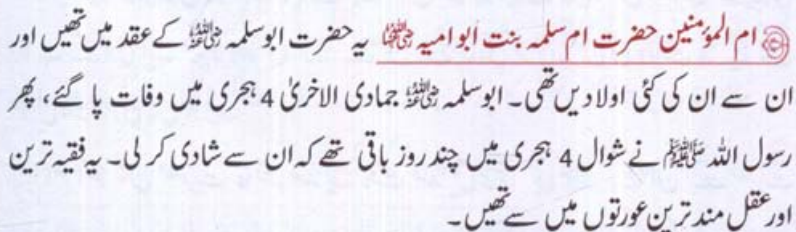 ام المؤمنین حضرت ام سلمہ بنت ابو امیہ رضی اللہ عنہا یہ حضرت ابوسلمہ رضی اللہ عنہ کے عقد میں تھیں اور
ان سے ان کی کئی اولادیں تھی۔ ابوسلمہ رضی اللہ عنہ جمادی الاخریٰ 4 ہجری میں وفات پا گئے، پھر
رسول اللہ ﷺ نے شوال 4 ہجری میں چند روز باقی تھے کہ ان سے شادی کر لی۔ یہ فقیہ ترین
اور عقل مند ترین عورتوں میں سے تھیں۔